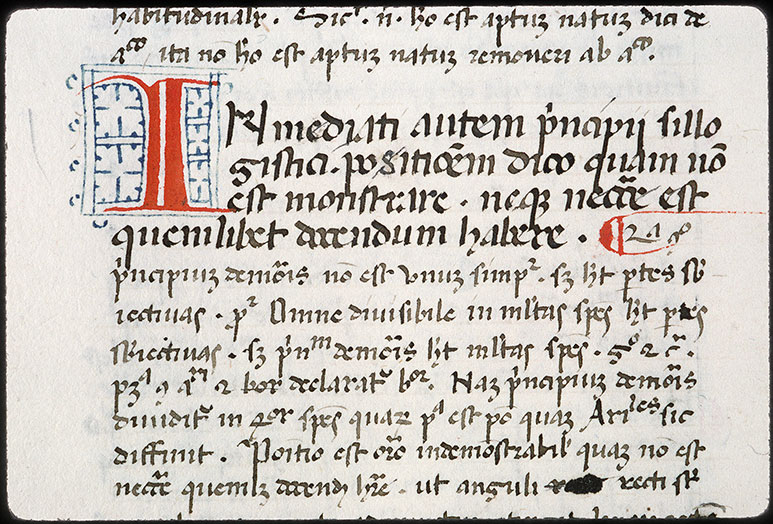 habitudinalr. Sicr. n. ho est aptuz natuz dici de
aco ita no ho est aptuz natuz removeri ab aco.
INmediati autem pncipii sillo
gistici. positioem dico quam no
est monstrare. neqz necce est
quemlibet docendum habere.
pncipiuz demois no est unuz simpr. sz ht partes sb
iectivas. pr Omne divisibile in mltas spes ht partes
sbiectivas. sz pnm demois ht mltas spes. go
declaratr bor. Naz pncipiuz demois
dividitr in spes quar pa est po quaz Ariles sic
diffinit. Poitio est oro indemostrabil quaz no est
necce quemlz docendz hre. ut anguli recti sr